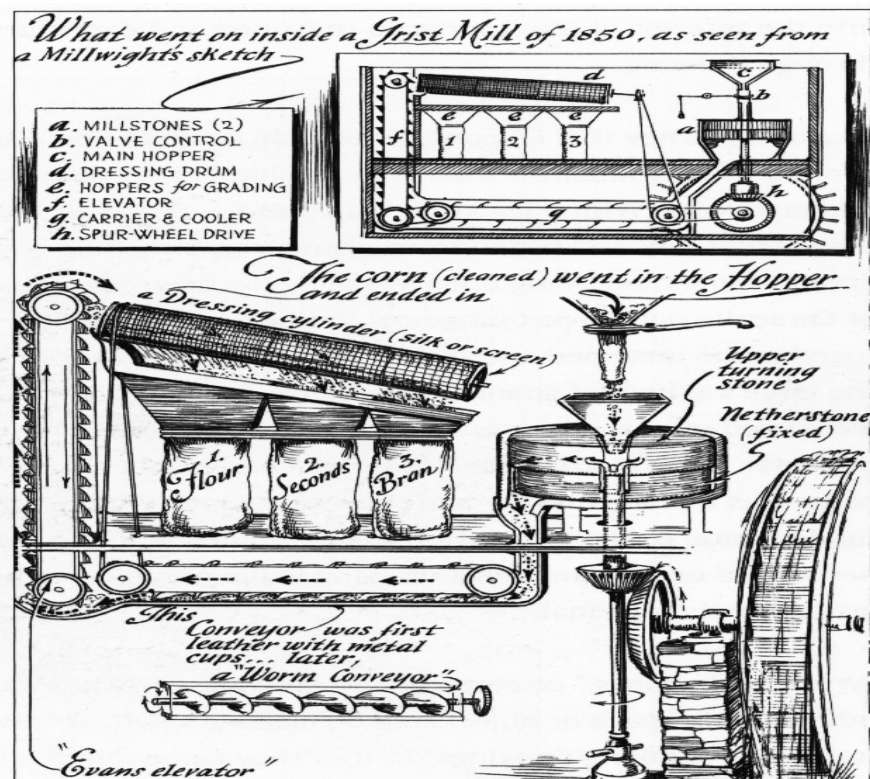 What went on inside a Grist Mill of 1850, as seen from
a Millwright's sketch
a. MILLSTONES (2)
b. VALVE CONTROL
c. MAIN HOPPER
d. DRESSING DRUM
e. HOPPERS for GRADING
f. ELEVATOR
g. CARRIER & COOLER
h. SPUR-WHEEL DRIVE
c
d
b
a
e e e
f
1 2 3
h
g
The corn (cleaned) went in the Hopper
and ended in
a Dressing cylinder (silk or screen)
Upper
turning
stone
Netherstone
(fixed)
1.
Flour
2.
Seconds
3.
Bran
This
Conveyor was first
leather with metal
cups... later,
a "Worm Conveyor"
"Evans elevator"